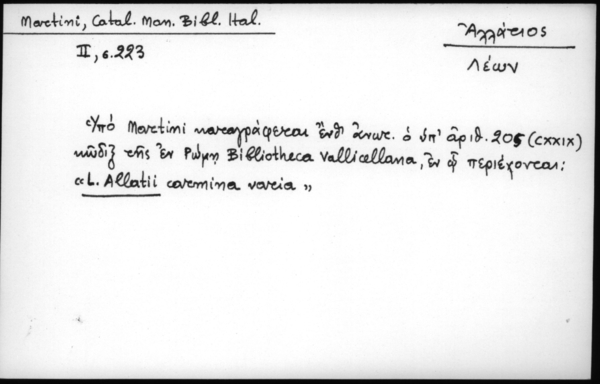 Martini, Catal. Man. Bibl. Ital.
II, σ. 223
Ἀλλάτιος
Λέων
Ὑπό Martini καταγράφεται ἔνθ' ἀνωτ. ὁ ὑπ' ἀριθ. 205 (CXXIX)
κῶδιξ τῆς ἐν Ρώμῃ Bibliotheca Vallicellana, ἐν ᾧ περιέχονται:
«L. Allatii carmina varia»